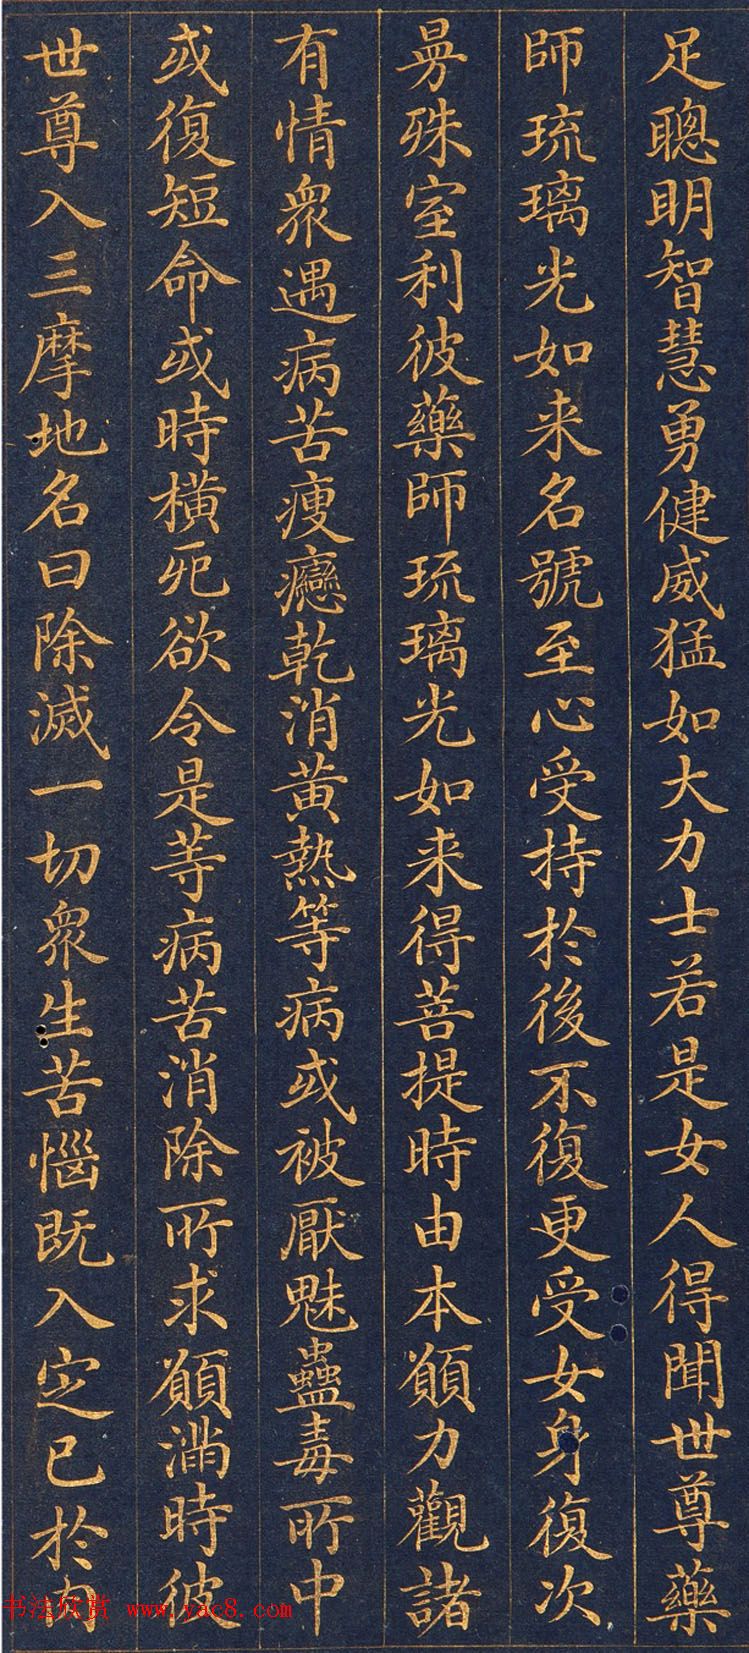 足聰明智慧勇健威猛如大力士若是女人得聞世尊藥
師琉璃光如来名號至心受持於後不復更受女身復次
曼殊室利彼藥師琉璃光如来得菩提時由本願力觀諸
有情衆遇病苦瘦癵乾消黄熱等病或被厭魅蠱毒所中
或復短命或時橫死欲令是等病苦消除所求願滿時彼
世尊入三摩地名曰除滅一切衆生苦惱既入定已於肉
书法欣赏 www.yac8.com